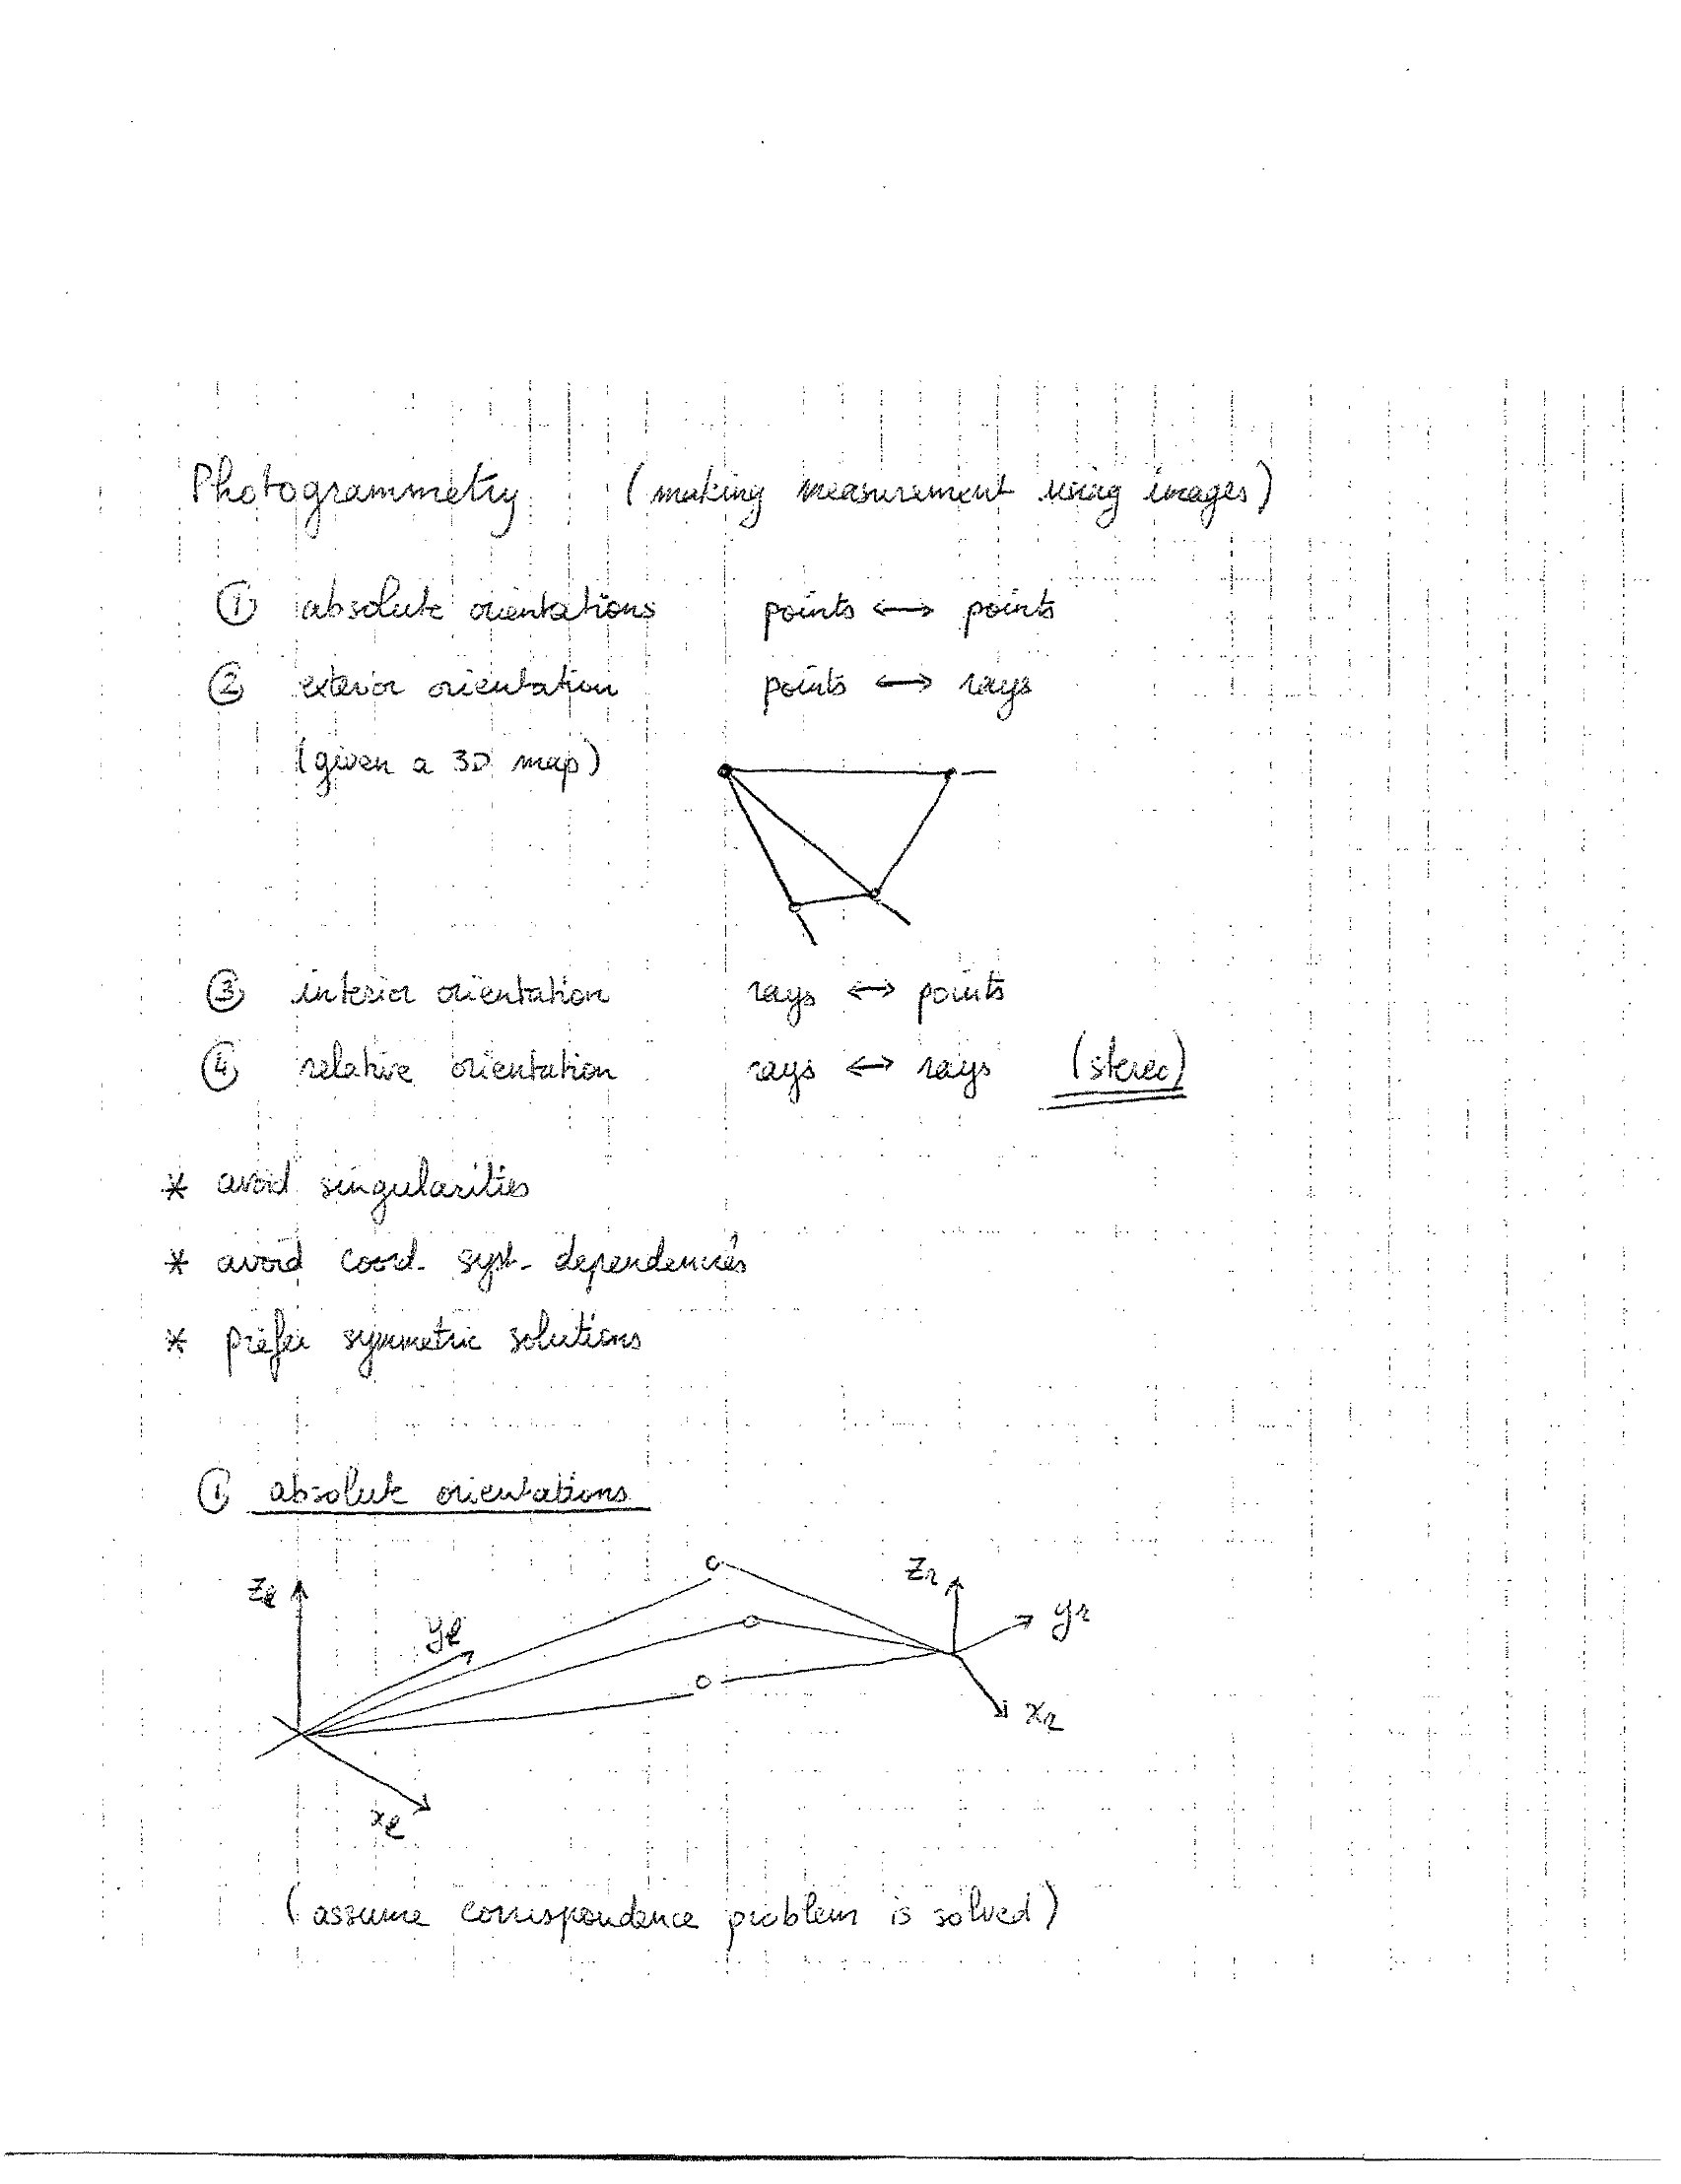 Photogrammetry (making measurement using images)
① absolute orientations points ↔ points
② exterior orientation points ↔ rays
(given a 3D map)
③ interior orientation rays ↔ points
④ relative orientation rays ↔ rays (stereo)
* avoid singularities
* avoid coord. syst. dependencies
* prefer symmetric solutions
① absolute orientations
z_l y_l x_l z_r y_r x_r
(assume correspondence problem is solved)